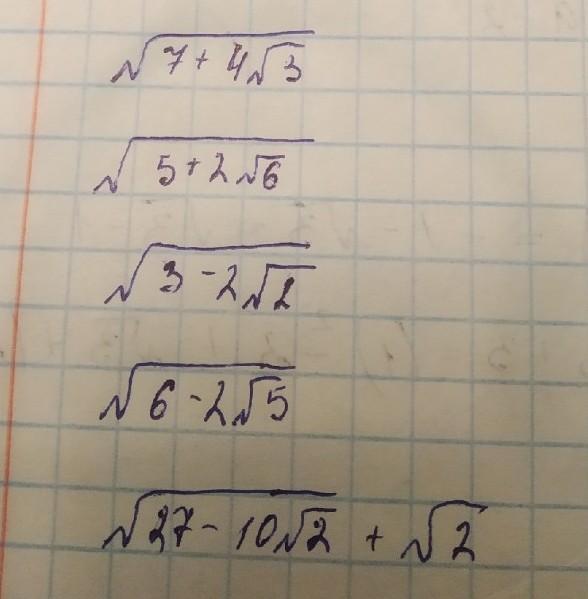 √(7 + 4√3)
√(5 + 2√6)
√(3 - 2√2)
√(6 - 2√5)
√(27 - 10√2) + √2